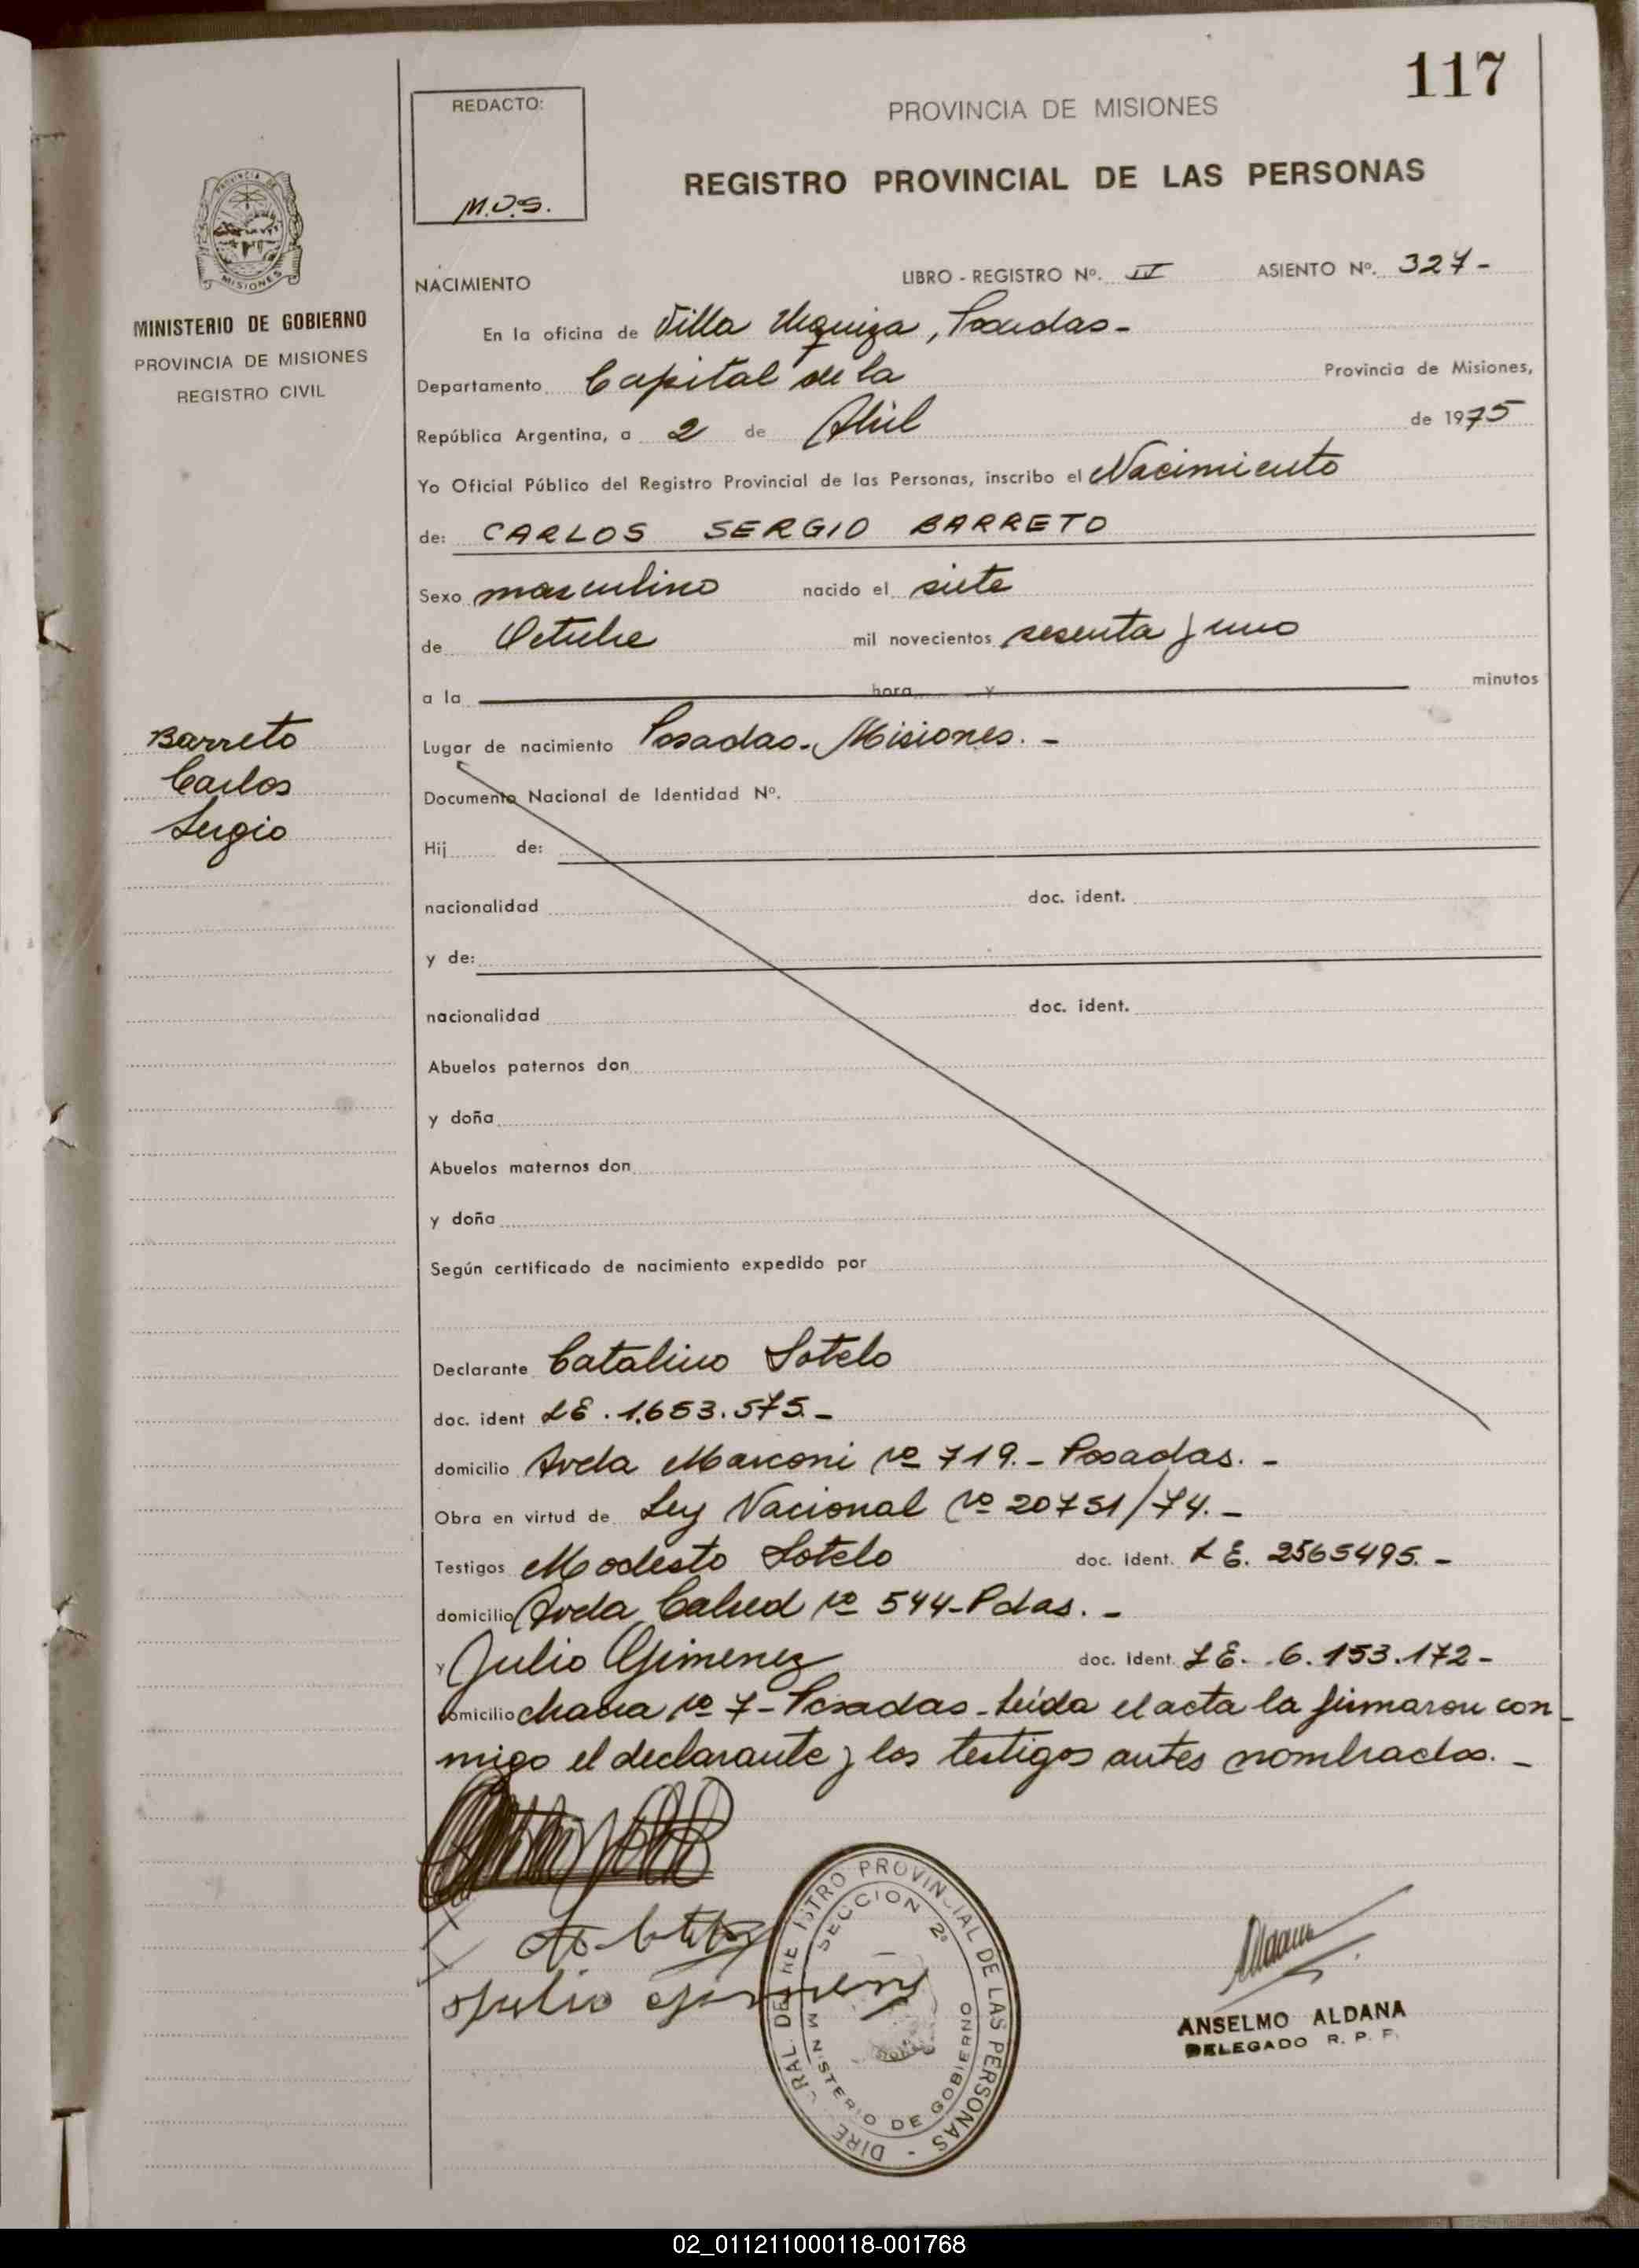 117
REDACTO:
M.J.S.
PROVINCIA DE MISIONES
REGISTRO PROVINCIAL DE LAS PERSONAS
PROVINCIA DE MISIONES
MINISTERIO DE GOBIERNO
PROVINCIA DE MISIONES
REGISTRO CIVIL
NACIMIENTO LIBRO - REGISTRO Nº. IV ASIENTO Nº. 327-
En la oficina de Villa Urquiza, Posadas-
Departamento Capital de la Provincia de Misiones,
República Argentina, a 2 de Abril de 1975
Yo Oficial Público del Registro Provincial de las Personas, inscribo el Nacimiento
de: CARLOS SERGIO BARRETO
Sexo masculino nacido el siete
de Octubre mil novecientos sesenta y uno
a la hora y minutos
Barreto
Carlos
Sergio
Lugar de nacimiento Posadas-Misiones.-
Documento Nacional de Identidad Nº.
Hij de:
nacionalidad doc. ident.
y de:
nacionalidad doc. ident.
Abuelos paternos don
y doña
Abuelos maternos don
y doña
Según certificado de nacimiento expedido por
Declarante Catalino Sotelo
doc. ident LE. 1.653.575.-
domicilio Avda Marconi nº 719.- Posadas.-
Obra en virtud de Ley Nacional nº 20751/74.-
Testigos Modesto Sotelo doc. ident. LE. 2565495.-
domicilio Avda Cabred nº 544-Pdas.-
y Julio Gimenez doc. ident. LE. 6.153.172-
domicilio chacra nº 7-Posadas-Leída el acta la firmaron con-
migo el declarante y los testigos antes nombrados.-
Julio Gimenez
REGISTRO PROVINCIAL DE LAS PERSONAS
SECCION 2ª
MINISTERIO DE GOBIERNO
ANSELMO ALDANA
DELEGADO R. P. P.
02_011211000118-001768